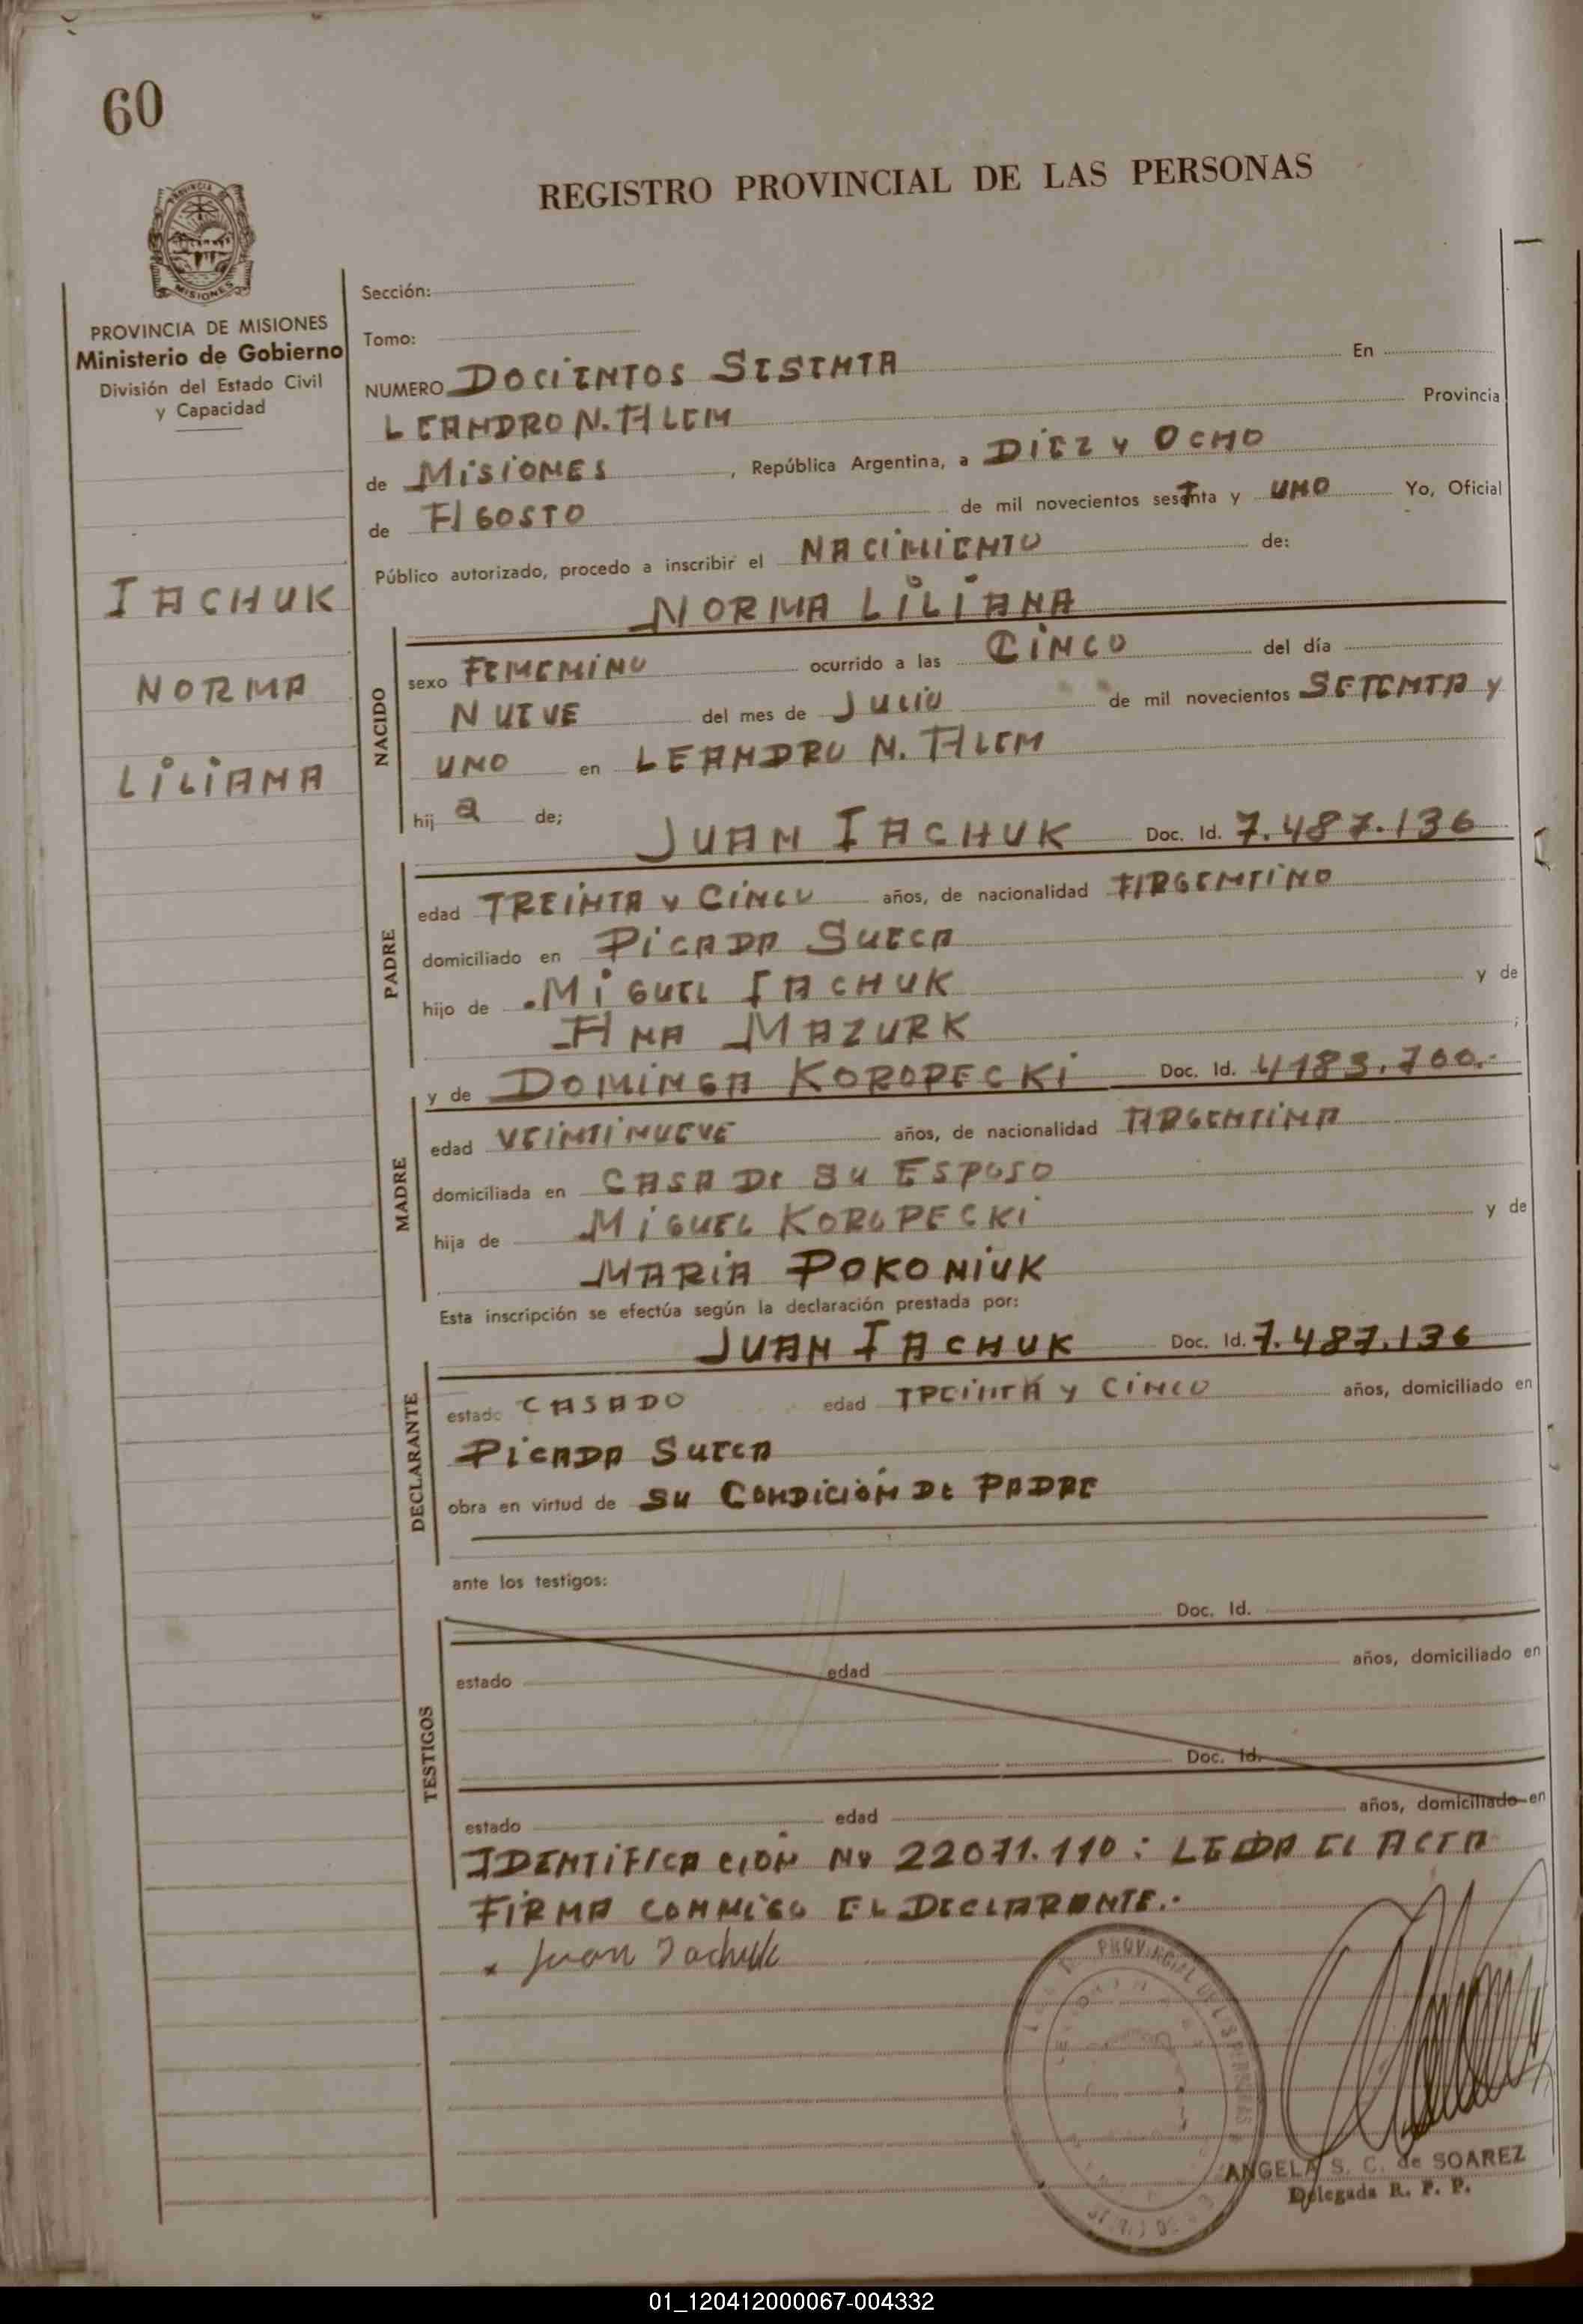 60
REGISTRO PROVINCIAL DE LAS PERSONAS
PROVINCIA DE MISIONES
Ministerio de Gobierno
División del Estado Civil
y Capacidad
IACHUK
NORMA
LILIANA
Sección:
Tomo:
NUMERO DOCIENTOS SESENTA En
LEANDRO N. ALEM Provincia
de MISIONES, República Argentina, a DIEZ Y OCHO
de AGOSTO de mil novecientos sesTnta y UNO Yo, Oficial
Público autorizado, procedo a inscribir el NACIMIENTO de:
NORMA LILIANA
NACIDO
sexo FEMENINO ocurrido a las CINCO del día
NUEVE del mes de JULIO de mil novecientos SETENTA y
UNO en LEANDRO N. ALEM
hij a de;
JUAN IACHUK Doc. Id. 7.487.136
PADRE
edad TREINTA Y CINCO años, de nacionalidad ARGENTINO
domiciliado en PICADA SUECA
hijo de MIGUEL IACHUK y de
ANA MAZURK ;
y de DOMINGA KOROPECKI Doc. Id. 4183.700.-
MADRE
edad VEINTINUEVE años, de nacionalidad ARGENTINA
domiciliada en CASA DE SU ESPOSO
hija de MIGUEL KOROPECKI y de
MARIA POKONIUK
Esta inscripción se efectúa según la declaración prestada por:
JUAN IACHUK Doc. Id. 7.487.136
DECLARANTE
estado CASADO edad TREINTA Y CINCO años, domiciliado en
PICADA SUECA
obra en virtud de SU CONDICIÓN DE PADRE
ante los testigos:
Doc. Id.
TESTIGOS
estado edad años, domiciliado en
Doc. Id.
estado edad años, domiciliado en
IDENTIFICACIÓN No 22071.110: LEIDA EL ACTA
FIRMA CONMIGO EL DECLARANTE.-
x Juan Iachuk
ANGELA S. C. de SOAREZ
Delegada R. P. P.
01_120412000067-004332